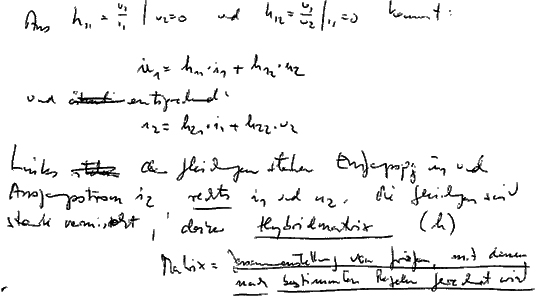 Aus h₁₁ = u₁/i₁ | u₂=0 und h₁₂ = u₁/u₂ | i₁=0 kommt:
u₁ = h₁₁·i₁ + h₁₂·u₂
und entsprechend:
i₂ = h₂₁·i₁ + h₂₂·u₂
Links der Gleichungen stehen Eingangsspg u₁ und
Ausgangsstrom i₂ rechts i₁ und u₂, die Gleichungen sind
stark vermischt, daher Hybridmatrix (h)
Matrix = Zusammenstellung von Größen, mit denen
nach bestimmten Regeln gerechnet wird